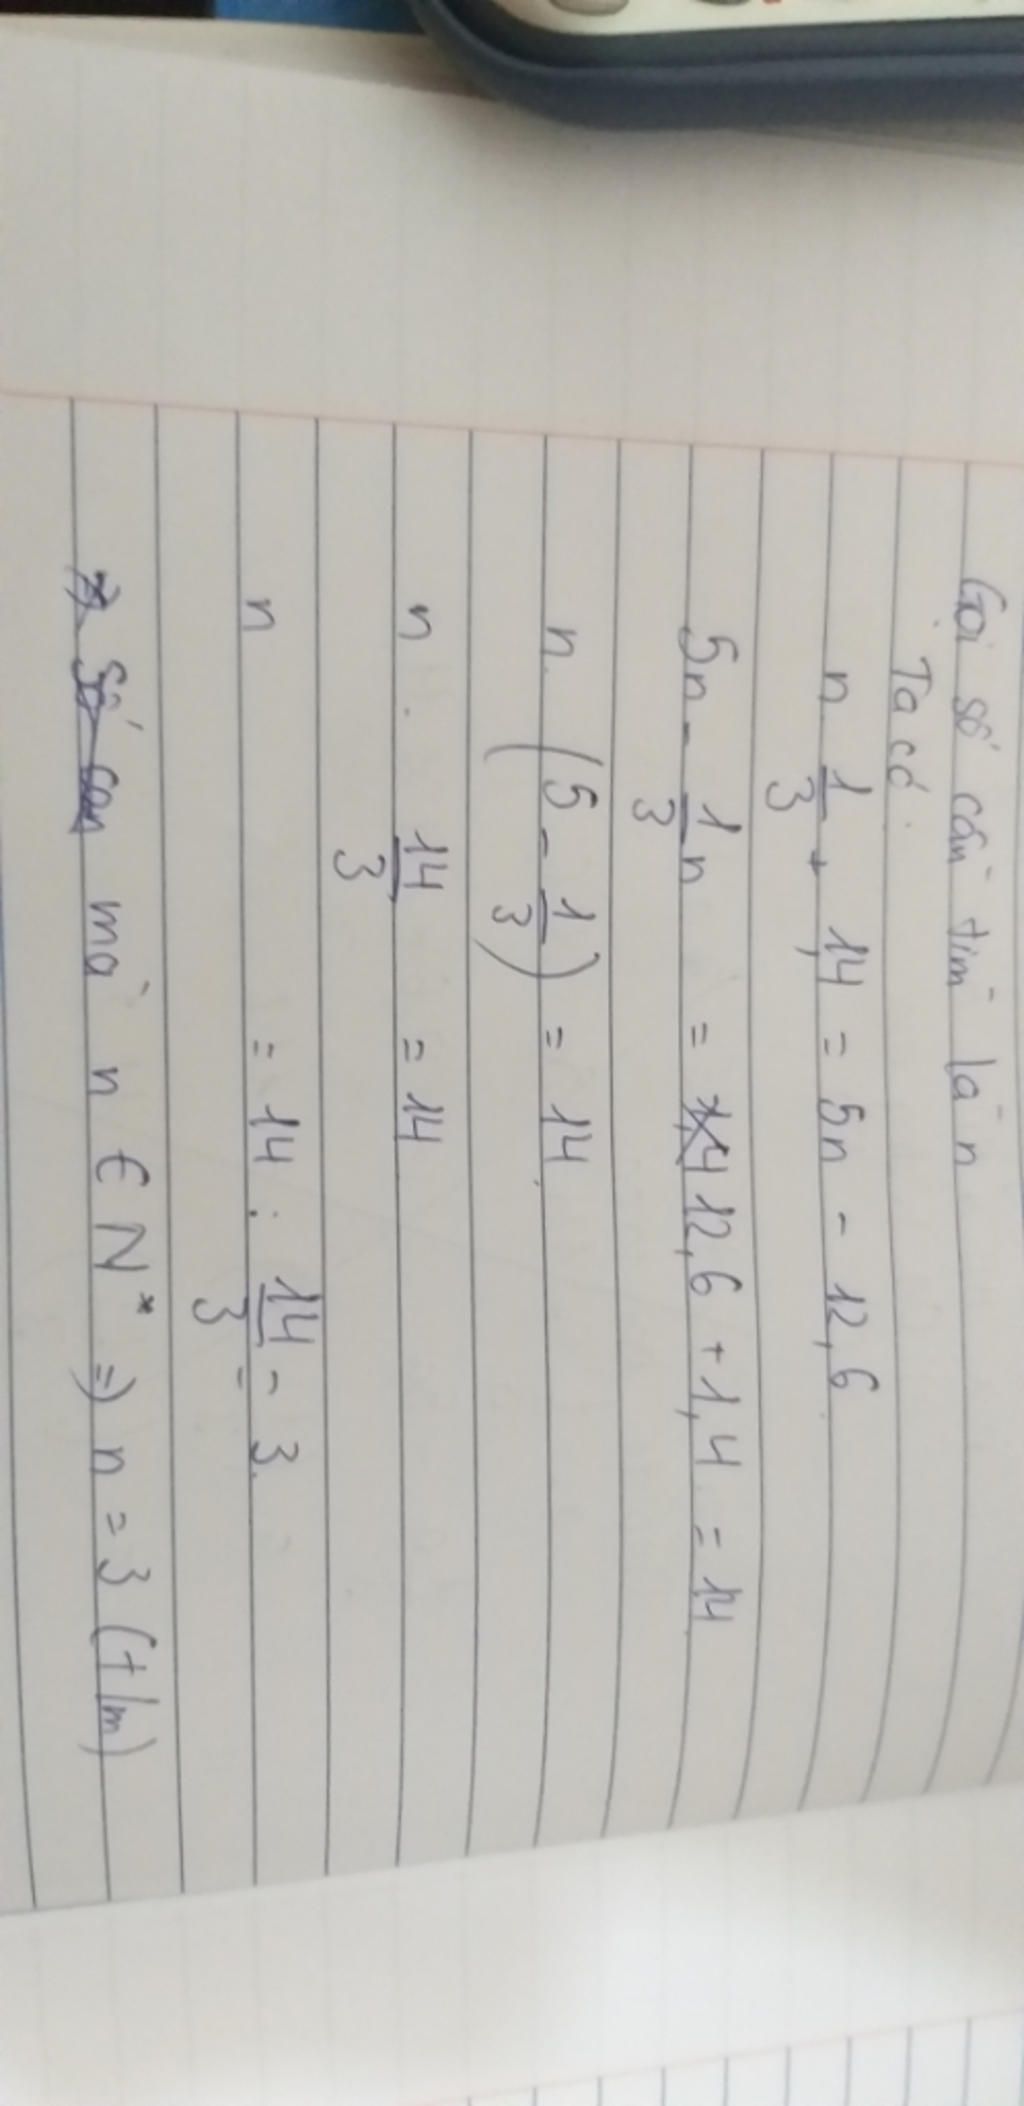 Gọi số cần tìm là n
Ta có:
n 1/3 + 1,4 = 5n - 12,6
5n - 1/3 n = 12,6 + 1,4 = 14
n. (5 - 1/3) = 14
n . 14/3 = 14
n = 14 : 14/3 = 3.
mà n ∈ N* => n = 3 (t/m)